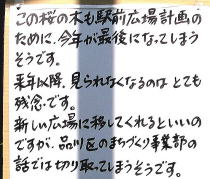 この桜の木も駅前広場計画の
ために、今年が最後になってしまう
そうです。
来年以降、見られなくなるのは とても
残念です。
新しい広場に移してくれるといいの
ですが、品川区のまちづくり事業部の
話では切り取ってしまうそうです。